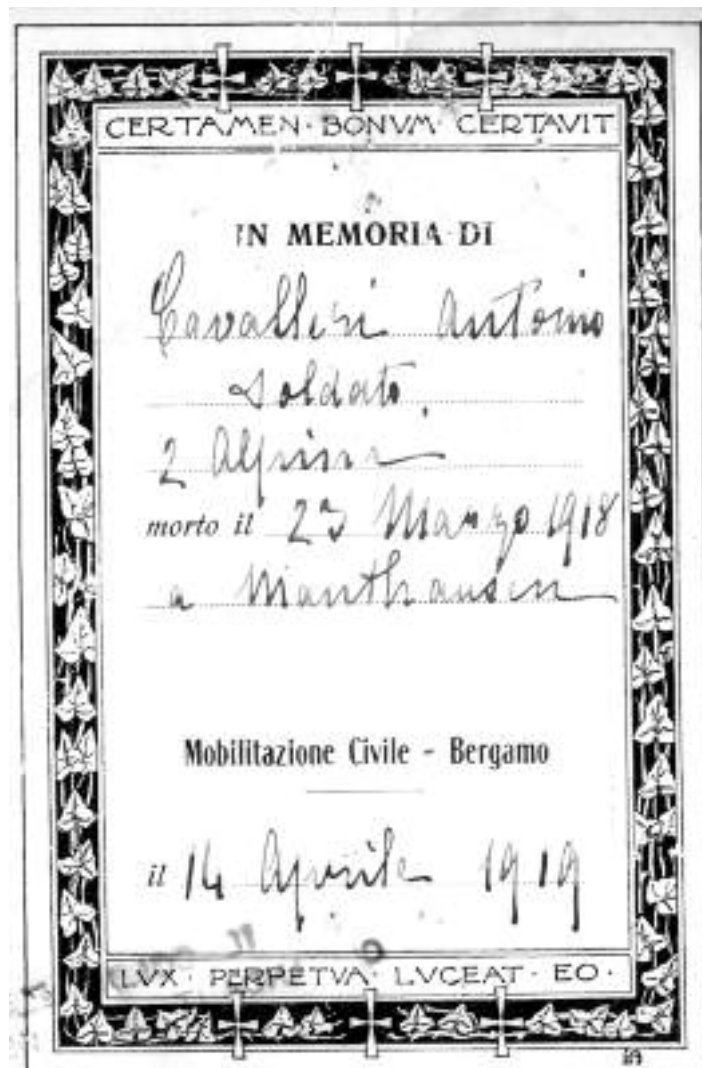 CERTAMEN · BONVM · CERTAVIT
IN MEMORIA DI
Cavalleri Antonio
soldato
2 Alpini
morto il 23 Marzo 1918
a Manthausen
Mobilitazione Civile - Bergamo
il 14 Aprile 1919
LVX · PERPETVA · LVCEAT · EO ·